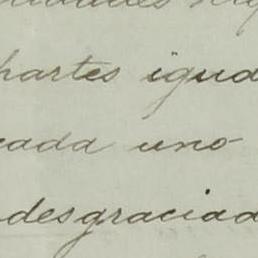 partes igua
cada uno
desgraciad